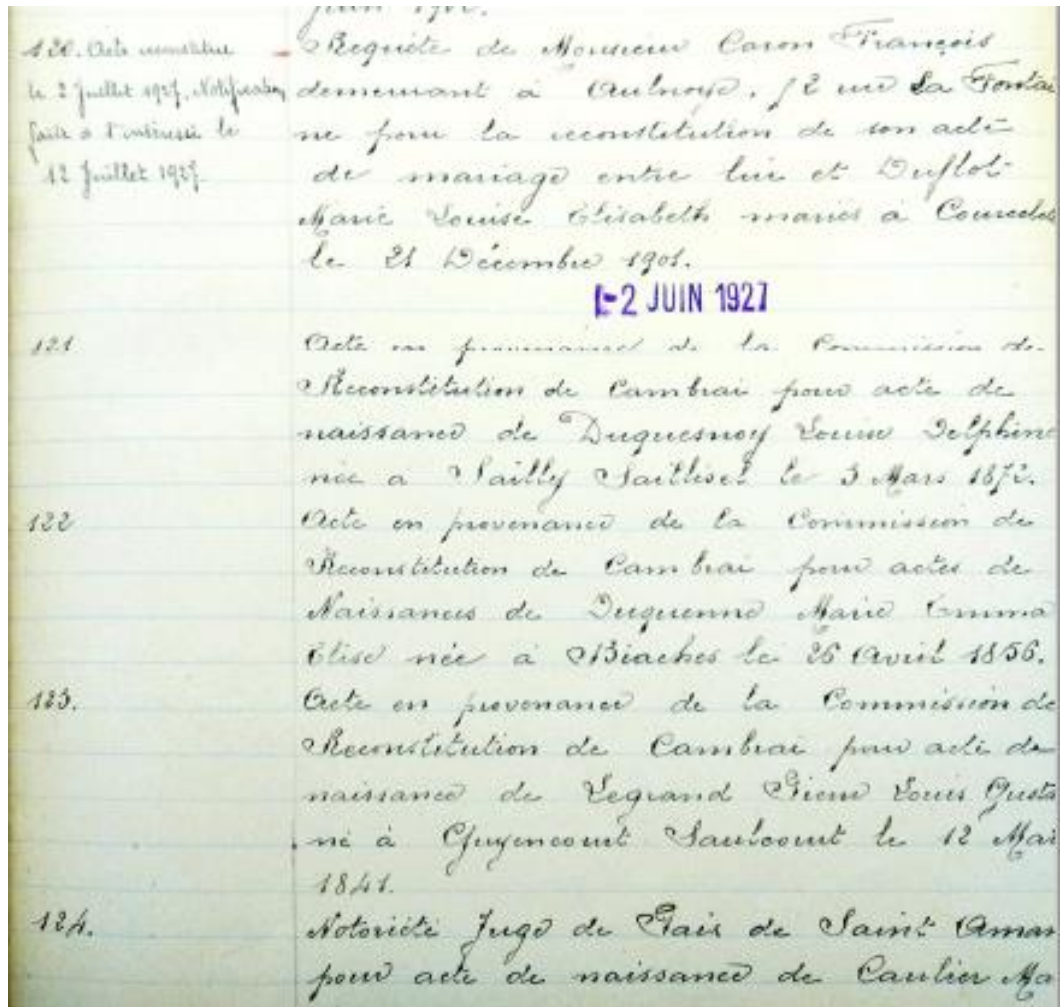 juin 1902.
120. Acte reconstitué
le 2 Juillet 1927. Notification
faite à l'intéressé le
12 Juillet 1927.
Requête de Monsieur Caron François
demeurant à Aulnoye, 72 rue La Fontai
ne pour la reconstitution de son acte
de mariage entre lui et Duflot
Marie Louise Elisabeth mariés à Courcelet
le 21 Décembre 1901.
-2 JUIN 1927
121
Acte en provenance de la Commission de
Reconstitution de Cambrai pour acte de
naissance de Duquesnoy Louise Delphine
née à Sailly Saillisel le 3 Mars 1872.
122
Acte en provenance de la Commission de
Reconstitution de Cambrai pour actes de
Naissances de Duquenne Marie Emma
Elise née à Biaches le 26 Avril 1856.
123.
Acte en provenance de la Commission de
Reconstitution de Cambrai pour acte de
naissance de Legrand Pierre Louis Gusta
né à Guyencourt Saulcourt le 12 Mai
1841.
124.
Notoriété Juge de Paix de Saint Aman
pour acte de naissance de Caulier Ma